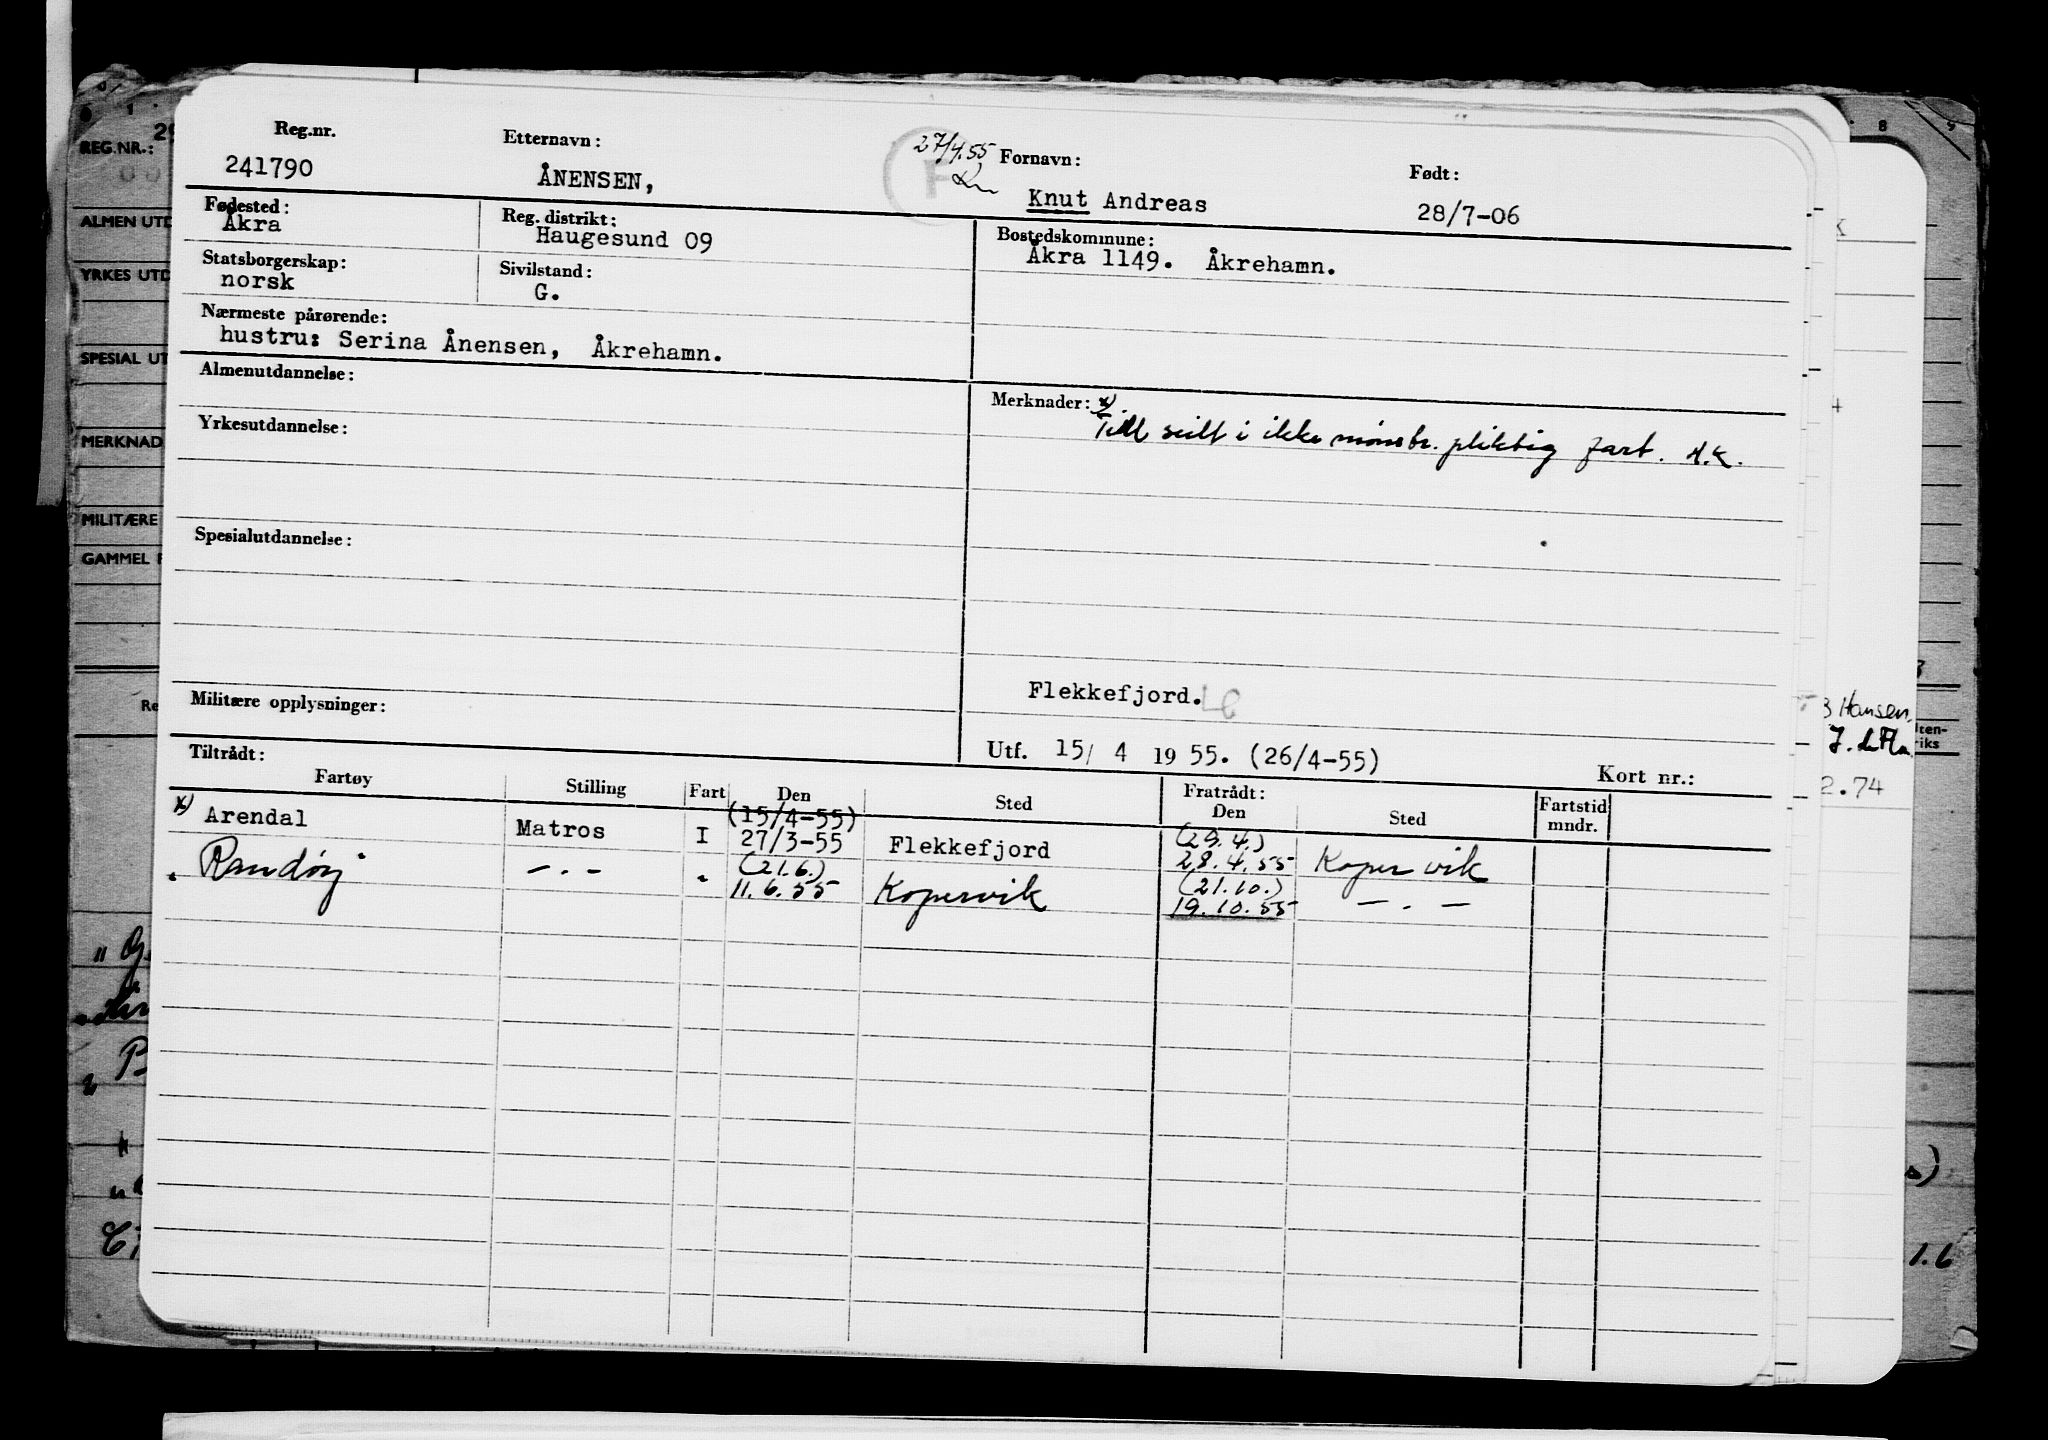 Reg.nr. Etternavn: 27/4.55 Fornavn: Født:
241790 ÅNENSEN, Knut Andreas 28/7-06
Fødested: Reg. distrikt: Bostedskommune:
Åkra Haugesund 09 Åkra 1149. Åkrehamn.
Statsborgerskap: Sivilstand:
norsk G.
Nærmeste pårørende:
hustru: Serina Ånensen, Åkrehamn.
Almenutdannelse:
Merknader: x)
Till seilt i ikke mønstr. pliktig fart. A.K.
Yrkesutdannelse:
Spesialutdannelse:
Flekkefjord.
Militære opplysninger:
Utf. 15/ 4 19 55. (26/4-55) Kort nr.:
Tiltrådt: Fratrådt:
Fartøy Stilling Fart Den Sted Den Sted Fartstid mndr.
(15/4-55) (29.4.)
x) Arendal Matros I 27/3-55 Flekkefjord 28.4.55 Kopervik
(21.6.) (21.10.)
" Randøy — . — " 11.6.55 Kopervik 19.10.55 — . —
REG.NR.:
ALMEN UTD
YRKES UTD
SPESIAL UT
MERKNAD
MILITÆRE
GAMMEL
Re
8 9
K
Hansen
2.74
iks
1.6